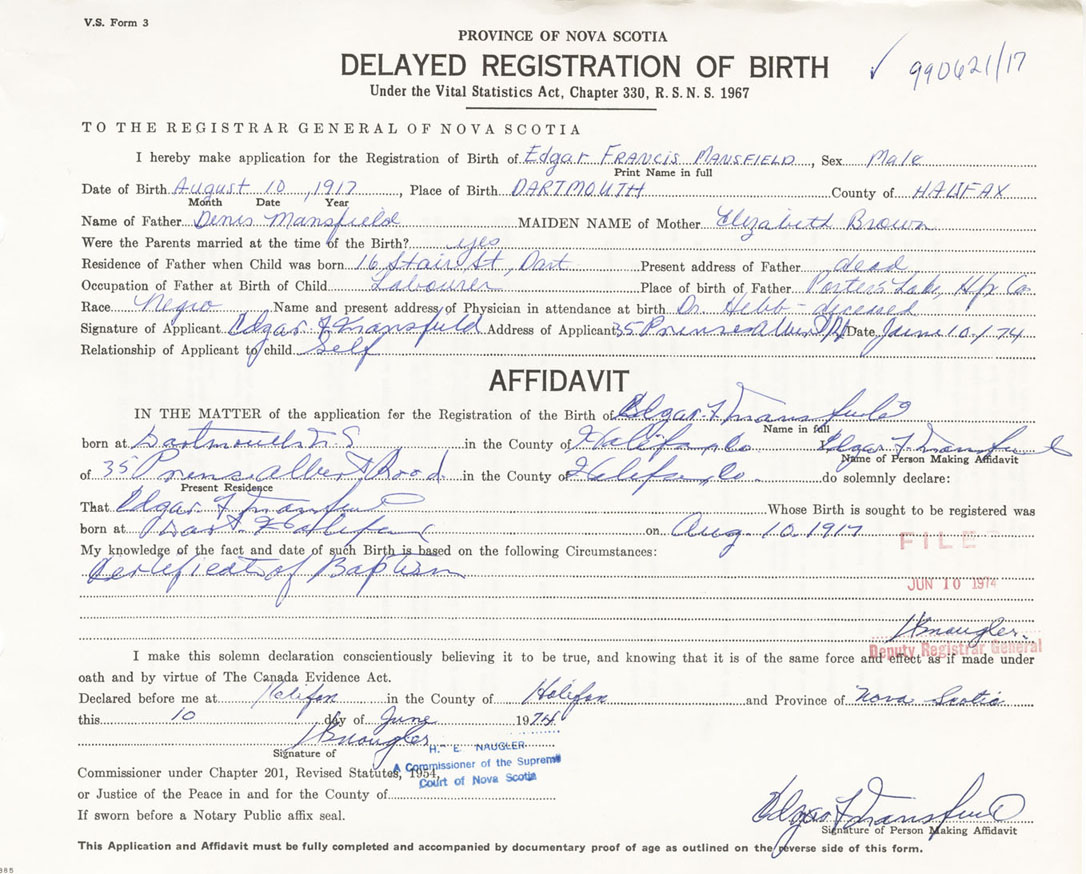 V.S. Form 3
PROVINCE OF NOVA SCOTIA
DELAYED REGISTRATION OF BIRTH
990621/17
Under the Vital Statistics Act, Chapter 330, R.S.N.S. 1967
TO THE REGISTRAR GENERAL OF NOVA SCOTIA
I hereby make application for the Registration of Birth of Edgar FRANCIS MANSFIELD, Sex Male
Print Name in full
Date of Birth August 10, 1917, Place of Birth DARTMOUTH County of HALIFAX
Month Date Year
Name of Father Denis Mansfield MAIDEN NAME of Mother Elizabeth Brown
Were the Parents married at the time of the Birth? yes
Residence of Father when Child was born 16 Stair St, Dart Present address of Father dead
Occupation of Father at Birth of Child Labourer Place of birth of Father Porters Lake, Hfx Co.
Race Negro Name and present address of Physician in attendance at birth Dr. Hebb - deceased
Signature of Applicant Edgar F Mansfield Address of Applicant 35 Prince Albert Rd Date June 10, 74
Relationship of Applicant to child Self
AFFIDAVIT
IN THE MATTER of the application for the Registration of the Birth of Edgar F Mansfield
Name in full
born at Dartmouth N S in the County of Halifax Co I, Edgar F Mansfield
Name of Person Making Affidavit
of 35 Prince Albert Road in the County of Halifax Co. do solemnly declare:
Present Residence
That Edgar F Mansfield Whose Birth is sought to be registered was
born at Dart. Halifax on Aug. 10. 1917
My knowledge of the fact and date of such Birth is based on the following Circumstances:
FILE
Certificate of Baptism
JUN 10 1974
HEnaugler.
Deputy Registrar General
I make this solemn declaration conscientiously believing it to be true, and knowing that it is of the same force and effect as if made under
oath and by virtue of The Canada Evidence Act.
Declared before me at Halifax in the County of Halifax and Province of Nova Scotia
this 10 day of June 1974
HEnaugler
Signature of
H. E. NAUGLER
A Commissioner of the Supreme
Court of Nova Scotia
Commissioner under Chapter 201, Revised Statutes, 1954,
or Justice of the Peace in and for the County of
If sworn before a Notary Public affix seal.
Edgar F Mansfield
Signature of Person Making Affidavit
This Application and Affidavit must be fully completed and accompanied by documentary proof of age as outlined on the reverse side of this form.
885